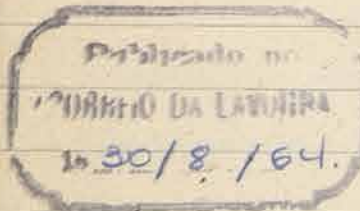 Publicado no
CORREIO DA LAVOURA
de 30/8/64.